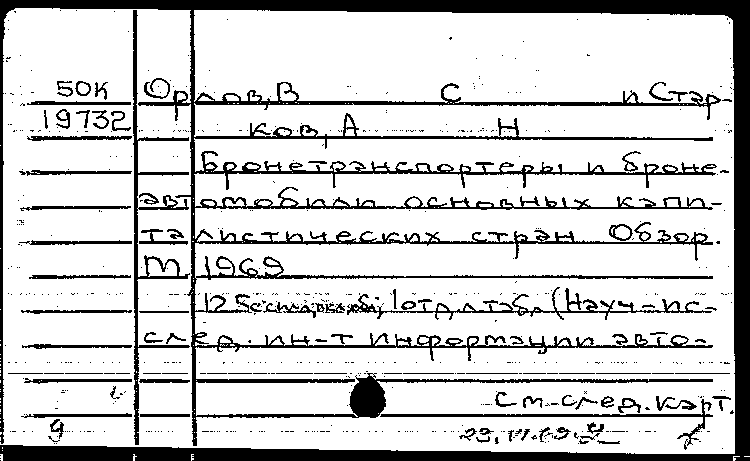 50К Орлов, В С и Стар-
19732 ков, А Н
Бронетранспортеры и броне-
автомобили основных капи-
талистических стран Обзор.
М 1969
125с 1 отд.л.табл (Науч-ис-
след. ин-т информации авто-
См след. карт.
9